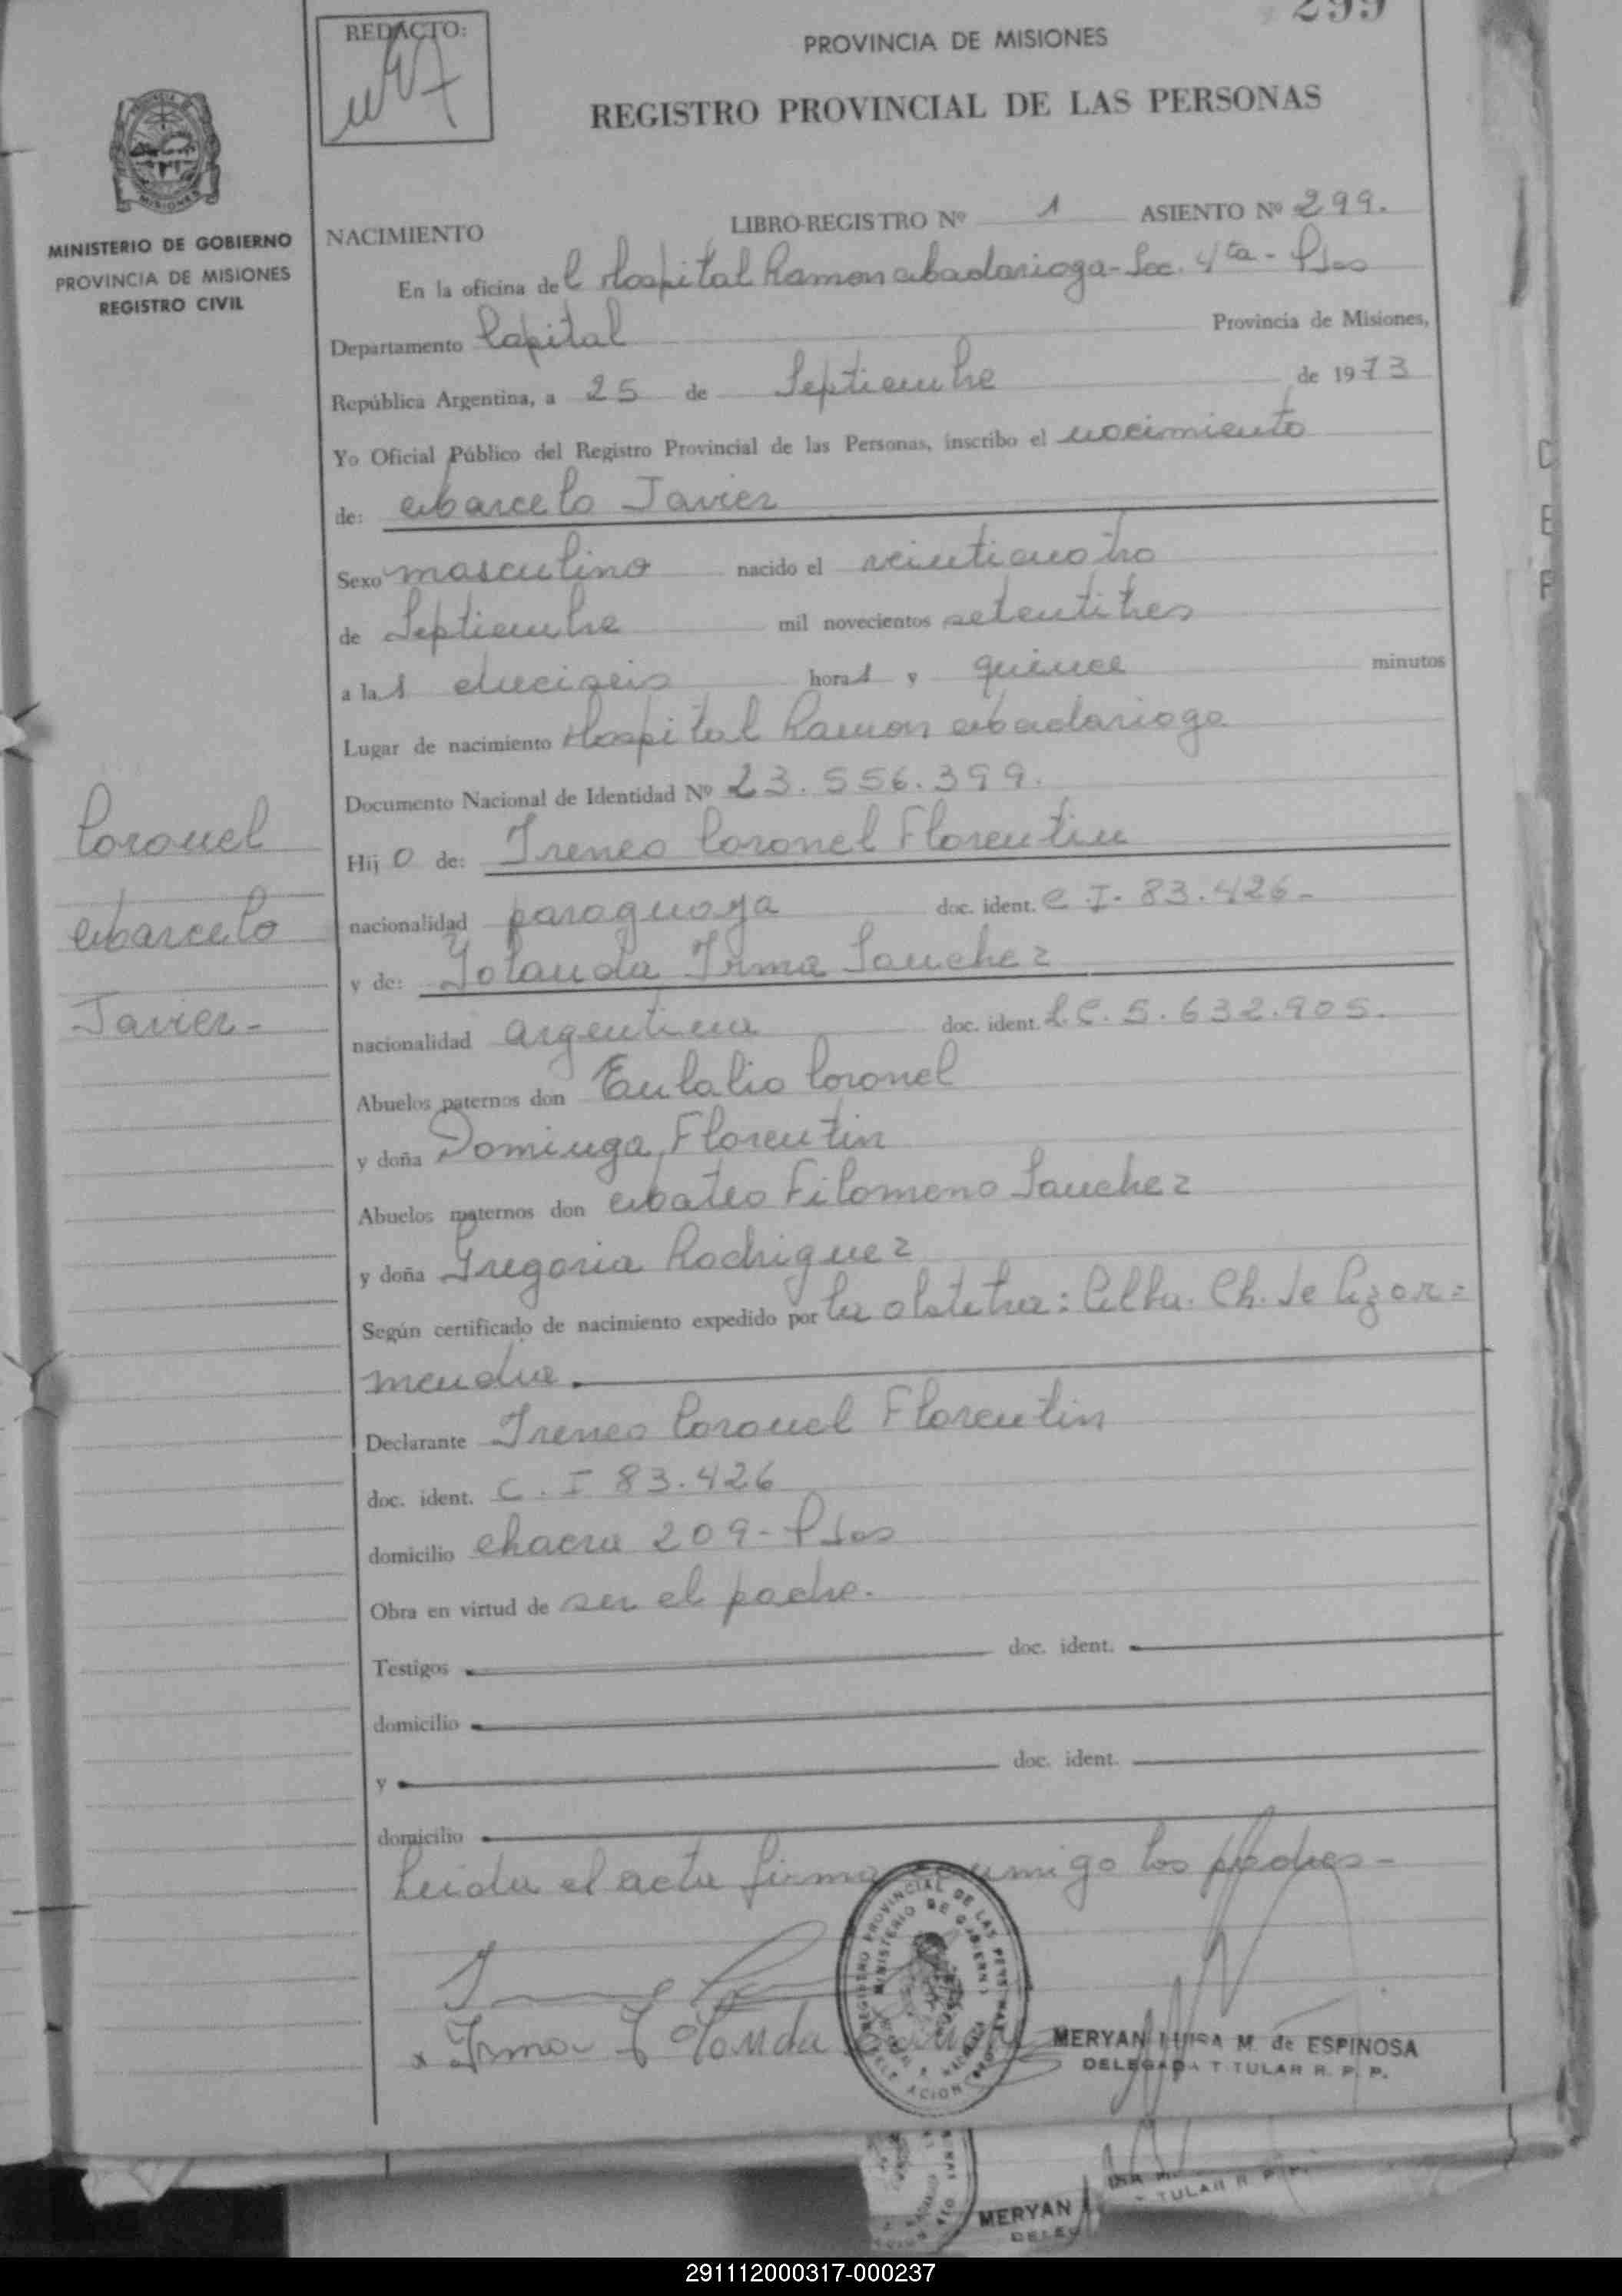 299
REDACTO:
PROVINCIA DE MISIONES
REGISTRO PROVINCIAL DE LAS PERSONAS
MINISTERIO DE GOBIERNO
PROVINCIA DE MISIONES
REGISTRO CIVIL
NACIMIENTO LIBRO-REGISTRO Nº 1 ASIENTO Nº 299.
En la oficina del Hospital Ramon Madariaga - Sec. 4ta - Pdas
Departamento Capital Provincia de Misiones,
República Argentina, a 25 de Septiembre de 1973
Yo Oficial Público del Registro Provincial de las Personas, inscribo el nacimiento
de: Marcelo Javier
Sexo masculino nacido el veinticuatro
de Septiembre mil novecientos setentitres
a las dieciseis horas y quince minutos
Lugar de nacimiento Hospital Ramon Madariaga
Documento Nacional de Identidad Nº 23.556.399.
Coronel
Marcelo
Javier-
Hijo de: Ireneo Coronel Florentin
nacionalidad paraguaya doc. ident. C.I. 83.426-
y de: Yolanda Irma Sanchez
nacionalidad argentina doc. ident. L.C. 5.632.905.
Abuelos paternos don Eulalio Coronel
y doña Dominga Florentin
Abuelos maternos don Mateo Filomeno Sanchez
y doña Gregoria Rodriguez
Según certificado de nacimiento expedido por la obstetra: Celha. Ch. de Lizar=
mendia.
Declarante Ireneo Coronel Florentin
doc. ident. C.I 83.426
domicilio Chacra 209 - Pdas
Obra en virtud de ser el padre.
Testigos doc. ident.
domicilio
y doc. ident.
domicilio
Leida el acta firman conmigo los padres-
Irma Yolanda
REGISTRO PROVINCIAL DE LAS PERSONAS
MINISTERIO DE GOBIERNO
MERYAN LUISA M. de ESPINOSA
DELEGADA TITULAR R. P. P.
MERYAN
TULAR R. P. P.
DELEG
C
E
F
291112000317-000237